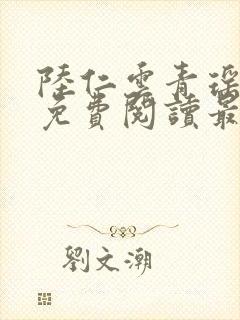 陸仁雲青瑶
免費閱讀最
劉文潮